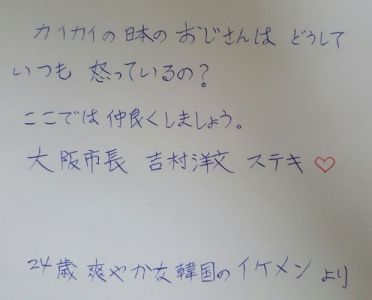 カイカイの日本のおじさんは どうして
いつも 怒っているの?
ここでは仲良くしましょう。
大阪市長 吉村洋文 ステキ♡
24歳 爽やかな韓国のイケメン より